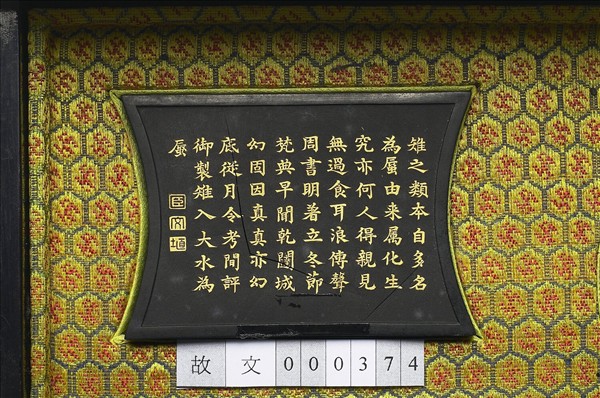 雉之類本自多名
為蜃由来属化生
究亦何人得親見
無過食耳浪傳聲
周書明著立冬節
梵典早聞乾闥城
幻固因真真亦幻
底從月令考閒評
御製雉入大水為
蜃
臣
故文000374